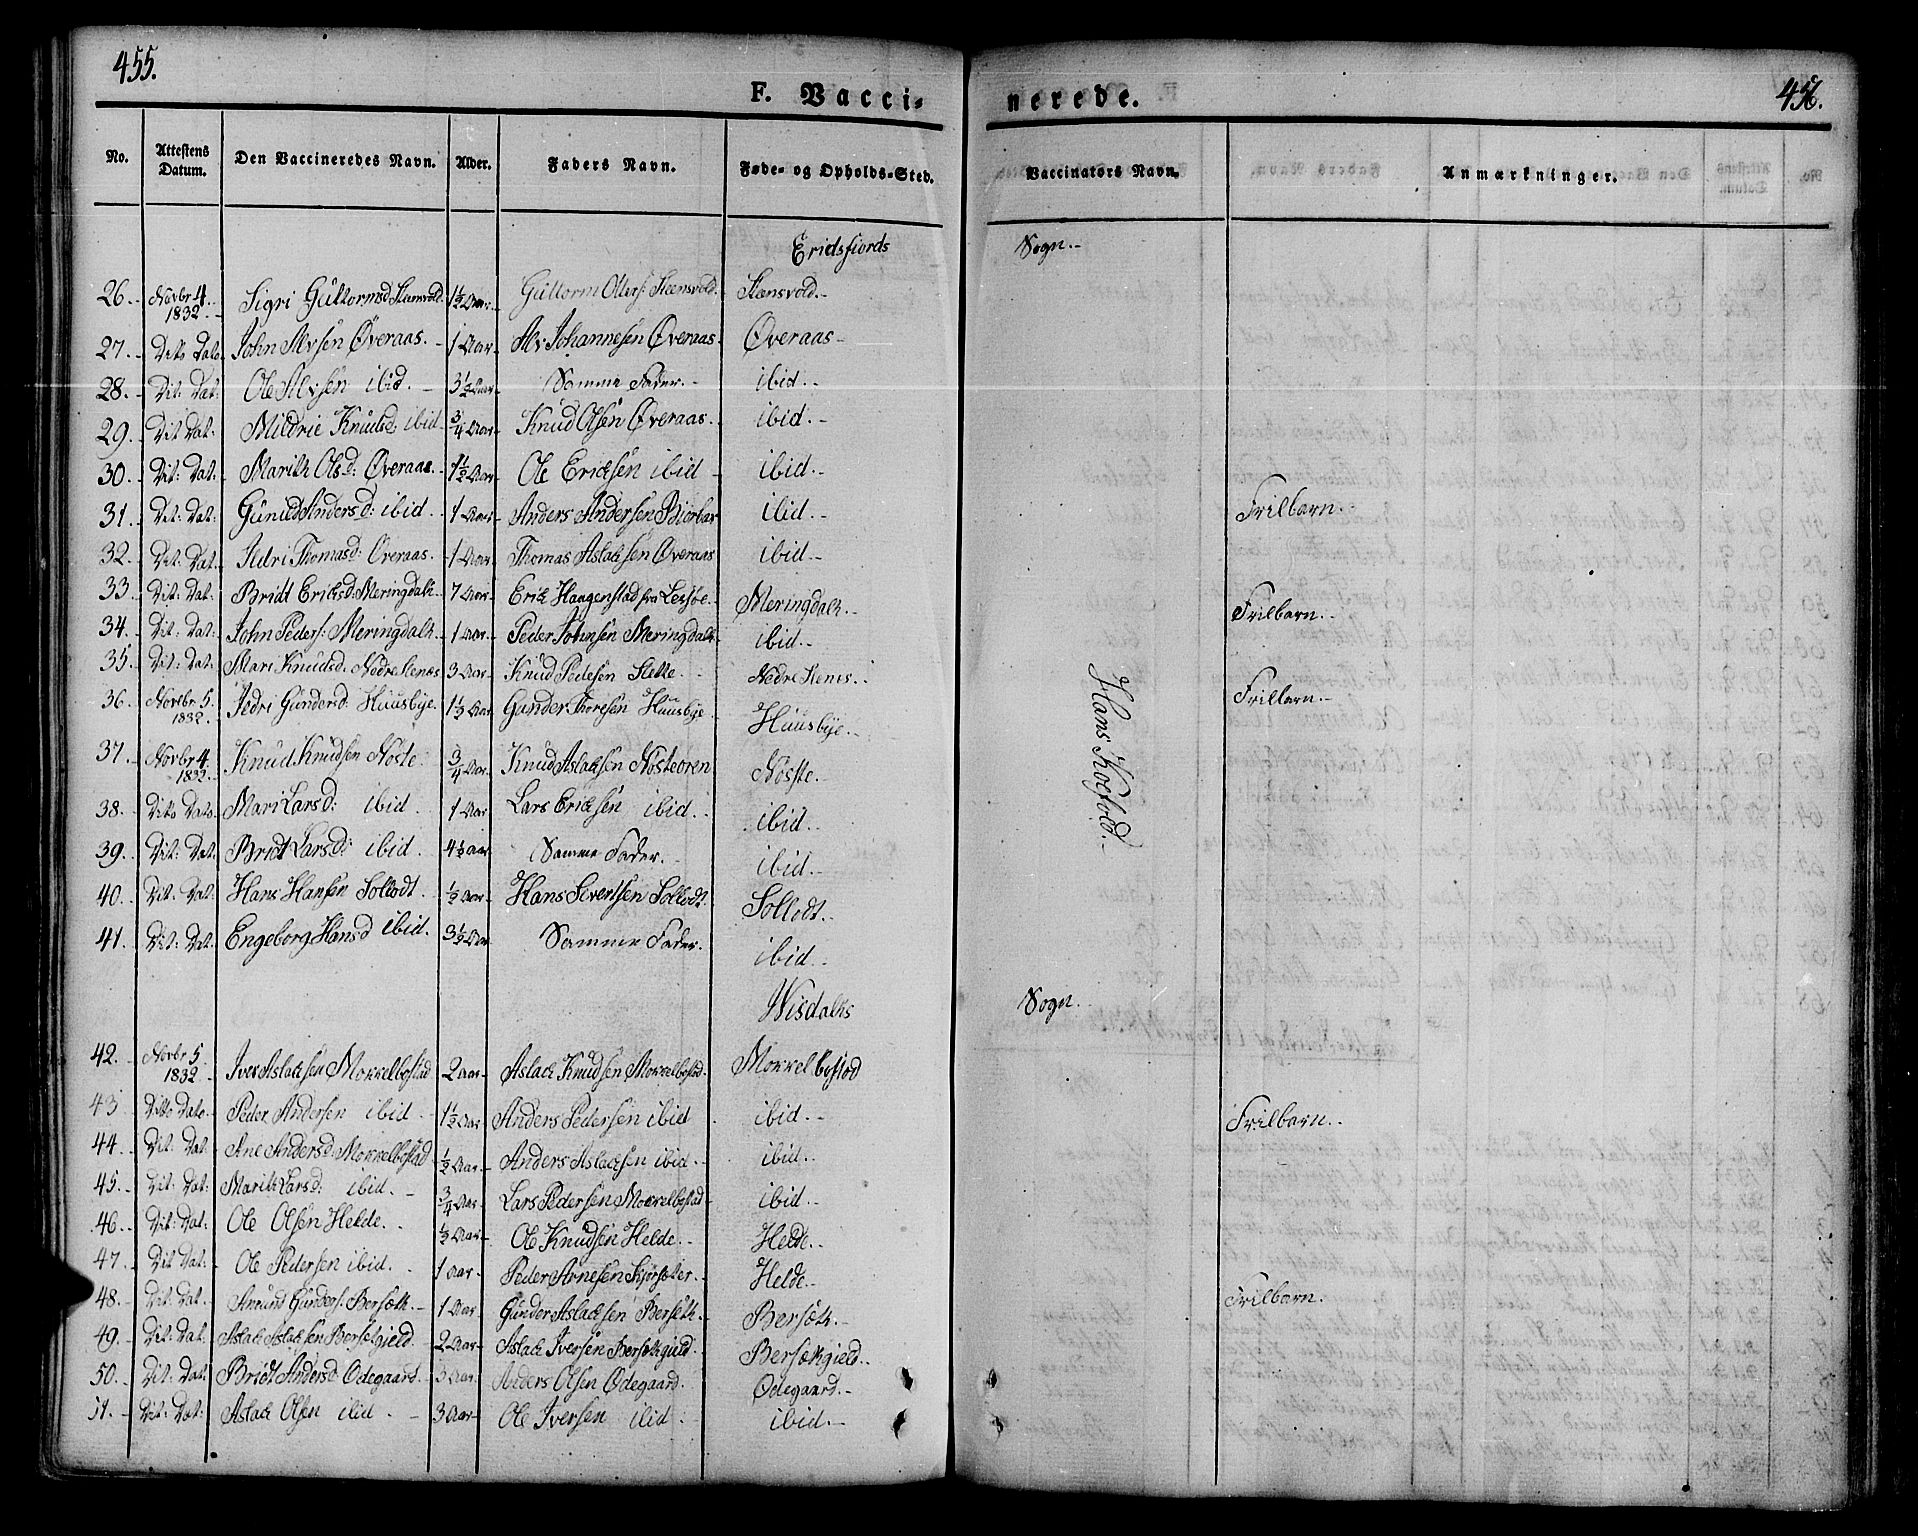 455.
456.
F. Vacci-
nerede.
No. Attestens Datum. Den Vaccineredes Navn. Alder. Faders Navn. Føde- og Opholds-Sted. Vaccinators Navn. Anmærkninger.
Eridsfiords Sogn.-
26.- Novbr 4. 1832.- Sigri Guttormsd Stensvold 1½ Aar.- Guttorm Olles: Stensvold.- Stensvold.-
27.- Dito Dato.- John Alvsen Øveraas.- 1 Aar- Alv Johannesen Øveraas. Øveraas-
28.- Dit: Dat: Ole Alvsen ibid.- 3½ Aar- Samme Fader.- ibid.-
29.- Dit Dat: Mildrie Knudsd: ibid ¾ Aar- Knud Olsen Øveraas.- ibid.-
30.- Dit: Dat: Marith Olsd: Øveraas.- 1½ Aar- Ole Ericksen ibid- ibid.-
31.- Dit: Dat: Gunild Andersd: ibid.- 1 Aar- Anders Andersen Biorbar ibid.- Frilbarn.-
32.- Dit: Dat. Jldri Thomasd: Overaas.- 1 Aar- Thomas Aslachsen Øveraas ibid.-
33.- Dit: Dat: Bridt Ericksd: Meringdalh- 7 Aar- Erick Haagenstad fra Lessøe.- Meringdalh.- Frilbarn.-
34.- Dit: Dat: John Peders: Meringdalh.- 1 Aar- Peder Johnsen Meringdalh ibid.-
35.- Dit: Dat: Mari Knudsd: Nedre Stenes 3 Aar- Knud Pedesen Slette.- Nedre Stenes.- Frilbarn.-
36.- Novbr. 5. 1832.- Jldri Gundersd: Huusbye. 1½ Aar Gunder Thoresen Huusbye Huusbye.-
37.- Novbr 4. 1832.- Knud Knudsen Nøste.- ¾ Aar Knud Aslachsen Nösteoren Nöste.-
38.- Dito Dato. Mari Larsd: ibid.- 1 Aar Lars Ericksen ibid.- ibid.-
39.- Dit: Dat. Bridt Larsd: ibid. 4½ Aar Samme Fader.- ibid.-
40.- Dit. Dat: Hans Hansen Sollodt. ½ Aar. Hans Sivertsen Sollodt. Sollodt.-
41.- Dit: Dat. Engeborg Hansd ibid. 3½ Aar Samme Fader. ibid.-
Hans Kofoed.
Wisdalhs Sogn.
42.- Novbr 5 1832- Jver Aslachsen Mokkelbostad 2 Aar- Aslach Knudsen Mokkelbostad- Mokkelbostad
43 Ditto Dato.- Peder Andersen ibid.- 1½ Aar- Anders Pedersen ibid ibid.- Frilbarn.-
44.- Dit. Dat. Ane Andersd: Mokkelbostad ½ Aar- Anders Aslachsen ibid.- ibid.-
45.- Dit: Dat: Marit Larsd: ibid.- ¾ Aar Lars Pedersen Mokkelbostad- ibid.-
46.- Dit: Dat: Ole Olsen Helde.- ½ Aar- Ole Knudsen Helde.- Helde.-
47.- Dit Dat:- Ole Pedersen ibid.- 1 Aar- Peder Arnesen Kjörsæter.- Helde- Frilbarn.
48.- Dit: Dat. Amund Gunders: Bersæth.- 1 Aar- Gunder Aslachsen Berseth.- Berseth.-
49.- Dit: Dat. Aslach Aslachsen Bersethgield. 2 Aar- Aslach Iversen Bersethgield. Bersethgield.-
50.- Dit: Dat: Bridt Andersd Odegaard. 3 Aar. Anders Olsen Ødegaard. Ødegaard.-
51.- Dit: Dat: Aslach Olsen ibid.- 3 Aar- Ole Iversen ibid.- ibid.-